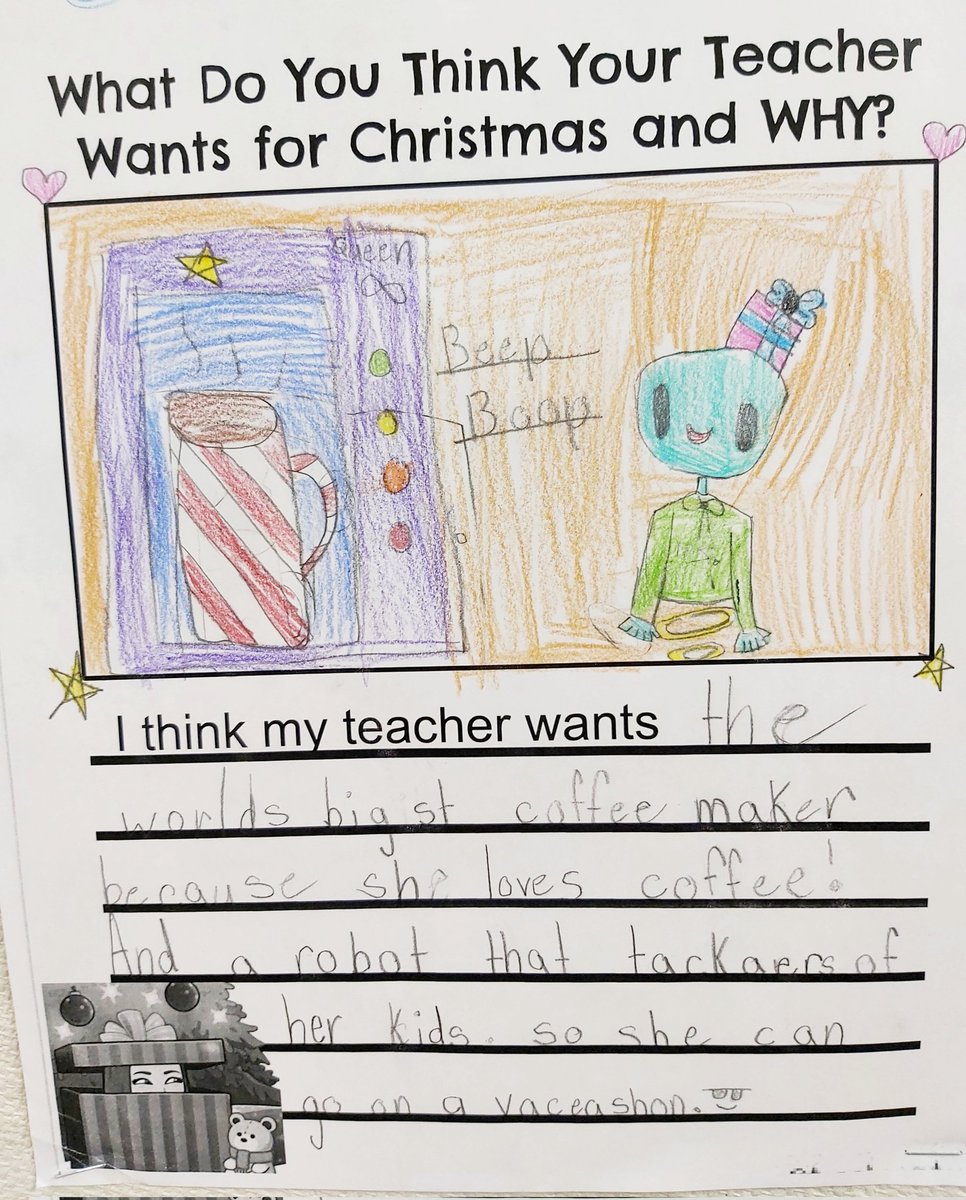 What Do You Think Your Teacher
Wants for Christmas and WHY?
Queen
Beep
Boop
I think my teacher wants the
worlds bigst coffee maker
because she loves coffee!
And a robot that tackaers of
her kids. so she can
go on a vaceashon.